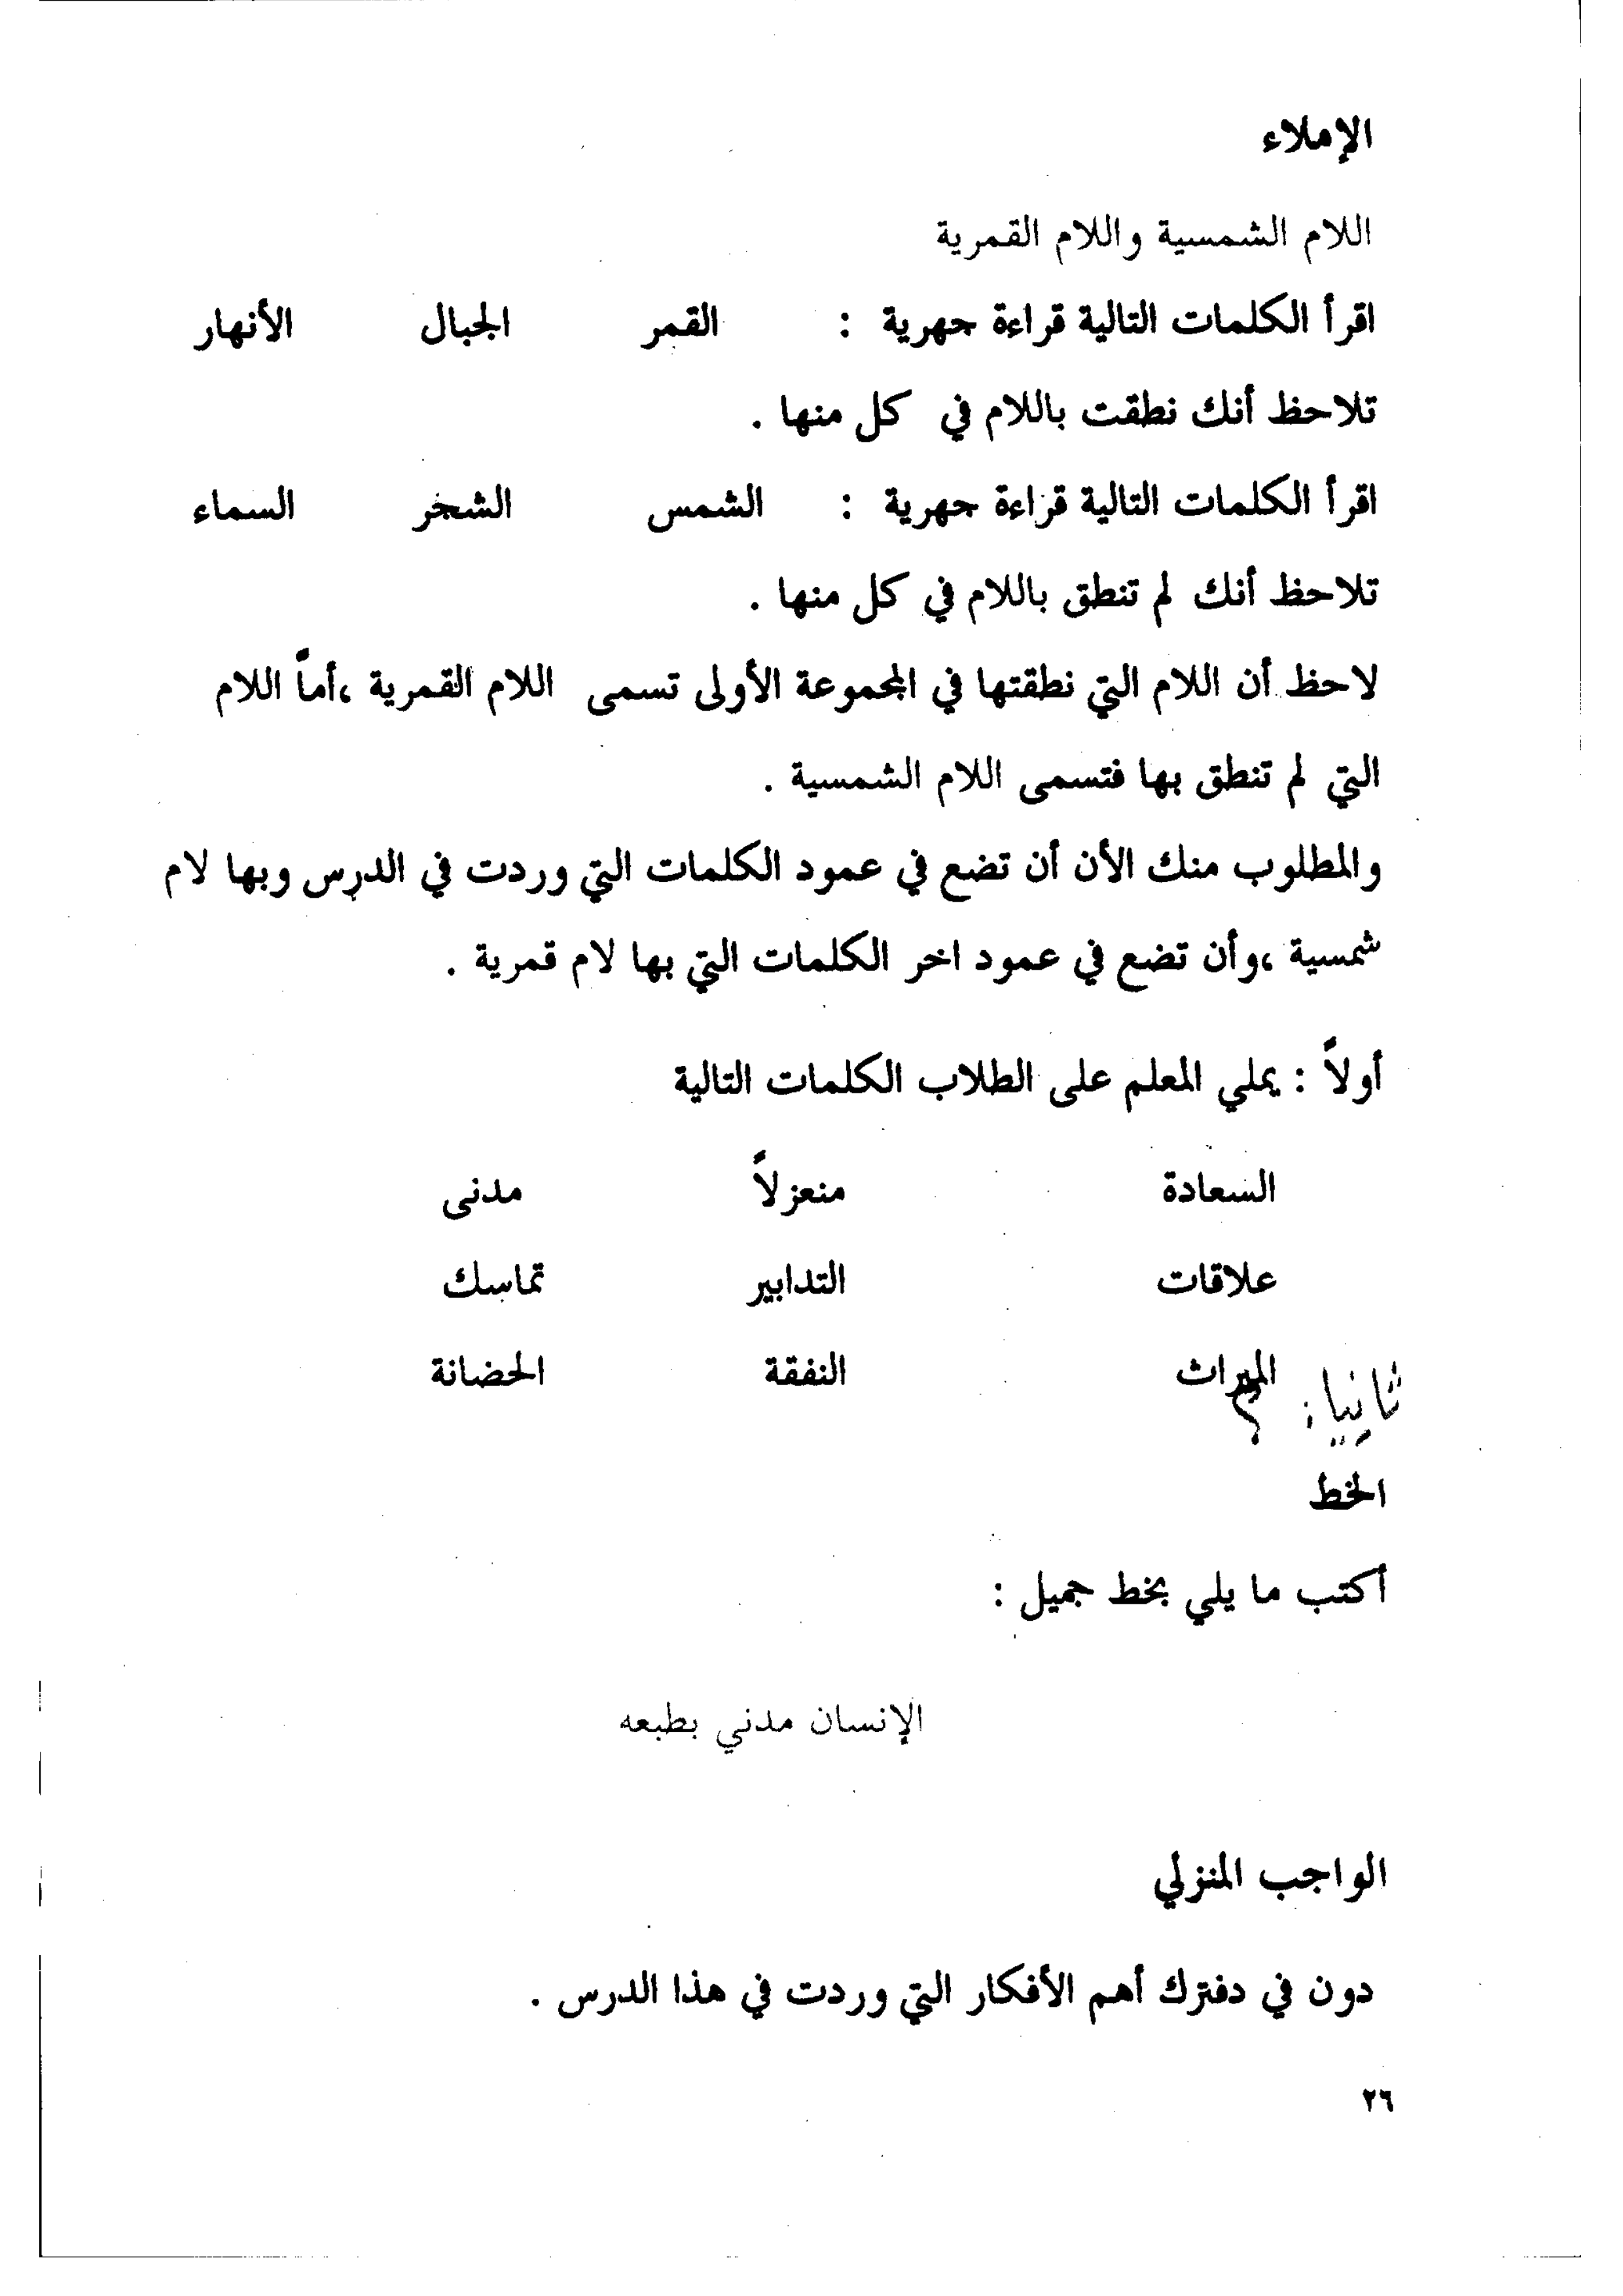 الإملاء
اللام الشمسية واللام القمرية
اقرأ الكلمات التالية قراءة جهرية : القمر الجبال الأنهار
تلاحظ أنك نطقت باللام في كل منها .
اقرأ الكلمات التالية قراءة جهرية : الشمس الشجر السماء
تلاحظ أنك لم تنطق باللام في كل منها .
لاحظ أن اللام التي نطقتها في المجموعة الأولى تسمى اللام القمرية ،أماً اللام
التي لم تنطق بها فتسمى اللام الشمسية .
والمطلوب منك الأن أن تضع في عمود الكلمات التي وردت في الدرس وبها لام
شمسية ،وأن تضع في عمود اخر الكلمات التي بها لام قمرية .
أولاً : يملي المعلم على الطلاب الكلمات التالية
السعادة منعزلاً مدنى
علاقات التدابير تماسك
الميراث النفقة الحضانة
ثانيا: ؟
الخط
أكتب ما يلي بخط جميل :
الإنسان مدني بطبعه
الواجب المنزلي
دون في دفترك أهم الأفكار التي وردت في هذا الدرس .
٢٦